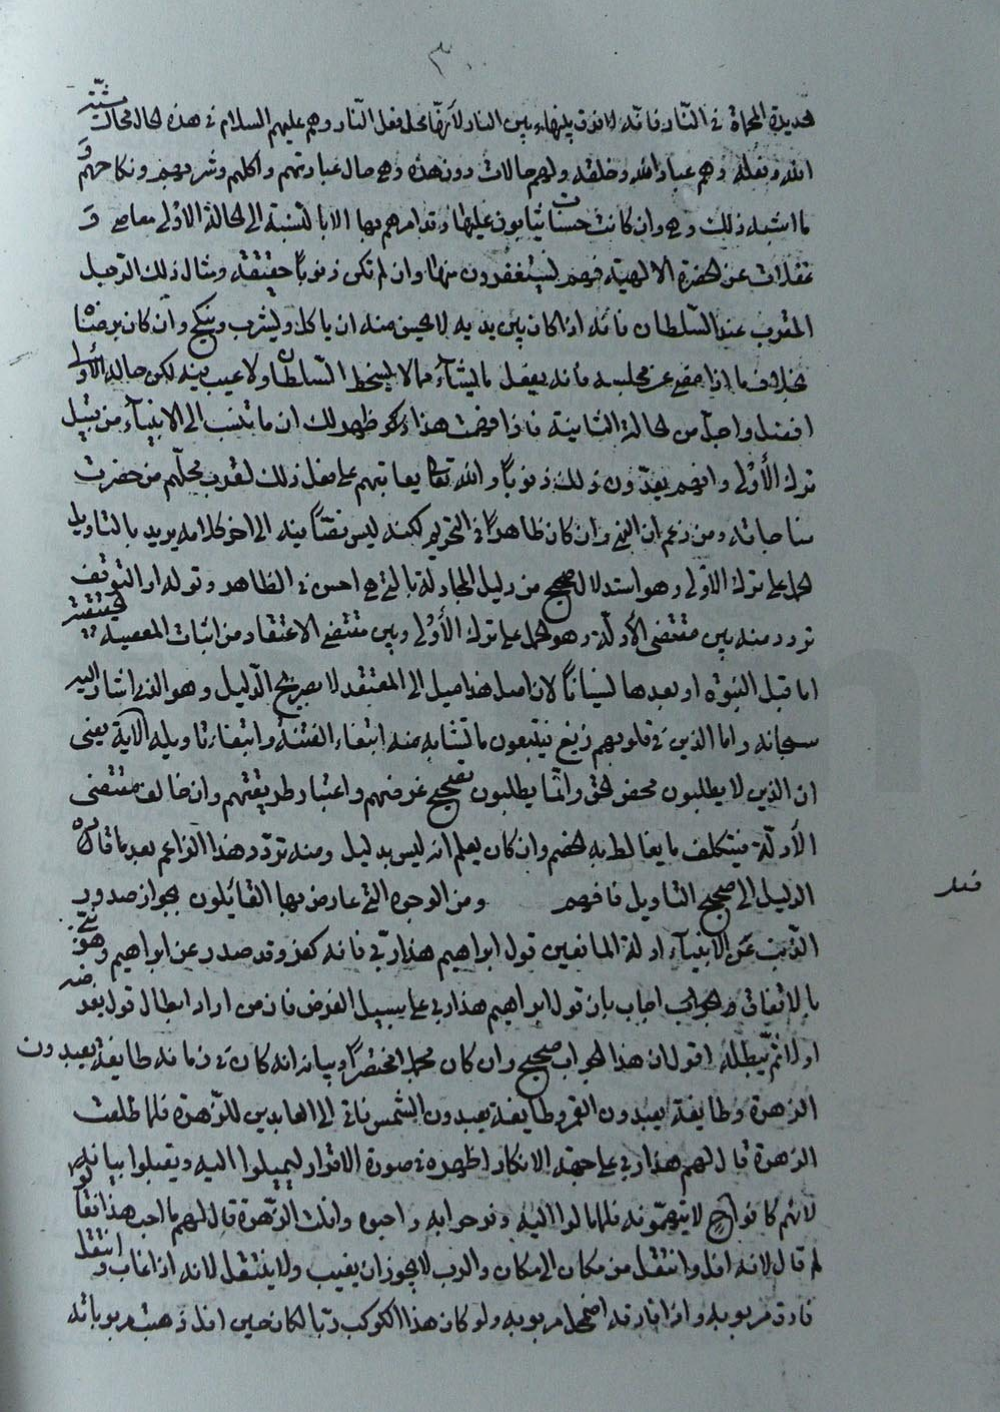 ٣٠٠
الحديدة المحماة في النار فانه لا فرق بينها وبين النار لأنها محل فعل النار وهم عليهم السلام في هذه الحال محال مشية
الله وفعله وهم عباد الله وخلقه ولهم حالات دون هذه وهي حال عبادتهم واكلهم وشربهم ونكاحهم و
ما اشبه ذلك وهي وان كانت حسنات يثابون عليها وقد امرهم بها الا بالنسبة الى الحالة الاولى معاصي و
غفلات عن الحضرة الالهية فهم يستغفرون منها وان لم تكن ذنوبا حقيقة ومثال ذلك الرجل
المقرب عند السلطان فانه اذا كان بين يديه لا يحسن منه ان ياكل ويشرب وينكح وان كان برضاه
بخلاف ما اذا مضى عن مجلسه فانه يفعل ما يشاء مما لا يسخط السلطان ولا عيب فيه لكن حاله الاولى
افضل واجل من الحالة الثانية فاذا فهمت هذا ظهر لك ان ما ينسب الى الانبياء من قبيل
ترك الأولى وانهم يعدون ذلك ذنوبا والله تعالى يعاتبهم على فعل ذلك لقرب محلهم من حضرت
مناجاته ومن زعم ان النهي وان كان ظاهرا في التحريم لكنه ليس نصا فيه الى اخر كلامه يريد بالتاويل
الحمل على ترك الاولى وهو استدلال صحيح من دليل المجادلة بالتي هي احسن في الظاهر وقوله او التوقف
تردد منه بين مقتضى الأدلة وهو الحمل على ترك الأولى وبين مقتضى الاعتقاد من اثبات المعصية حقيقة
اما قبل النبوة او بعدها نسيانا لان اصل هذا ميل الى المعتقد لا بصريح الدليل وهو الذي اشار اليه
سبحانه واما الذين في قلوبهم زيغ فيتبعون ما تشابه منه ابتغاء الفتنة وابتغاء تاويله الآية يعني
ان الذين لا يطلبون محض الحق وانما يطلبون تصحيح غرضهم واعتبار طريقتهم وان خالف مقتضى
الأدلة فيتكلف ما يغالط به الخصم وان كان يعلم انه ليس بدليل ومنه تردد هذا الزاعم بعد ما قاده
الدليل الى صحيح التاويل فافهم ومن الوجوه التي عارض بها القائلون بجواز صدور
الذنب عن الانبياء ادلة المانعين قول ابراهيم هذا ربي فانه كفر وقد صدر عن ابراهيم وهو نبي
بالاتفاق والجواب اجاب بان قول ابراهيم هذا ربي على سبيل الفرض فان من اراد ابطال قول يفرضه
اولا ثم يبطله اقول ان هذا الجواب صحيح وان كان مجملا مختصرا وبيانه انه كان في زمانه طايفة يعبدون
الزهرة وطايفة يعبدون القمر وطايفة يعبدون الشمس فاتى الى العابدين للزهرة فلما طلعت
الزهرة قال لهم هذا ربي على جهة الانكار اظهره في صورة الاقرار ليميلوا اليه ويقبلوا بيانه
لأنهم كانوا لا يتهمونه فلما مالوا اليه وفرحوا به واحبوه وافلت الزهرة قال لهم ما احب هذا فقالوا
لم قال لانه افل وانتقل من مكان الى مكان والرب لا يجوز ان يغيب ولا ينتقل لانه اذا غاب وانتقل
فارق مربوبه واذا فارقه اضمحل مربوبه ولو كان هذا الكوكب ربا لكان حين افل ذهبت مربوباته